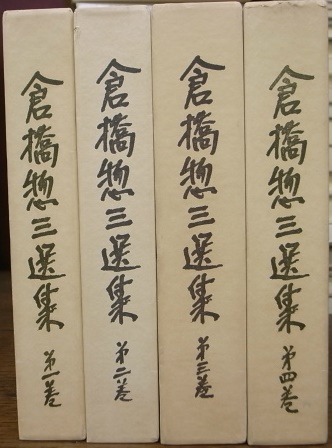 倉橋惣三選集 第一巻
倉橋惣三選集 第二巻
倉橋惣三選集 第三巻
倉橋惣三選集 第四巻